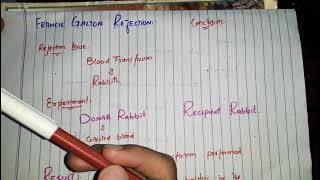 FRANCIS GALTON REJECTION:
Conclusion:
Rejection Base:
Blood Transfusion
Rabbits
Experiment:
DONAR Rabbit
Recipent Rabbit.
Collected blood
performed
RESULT:
in its